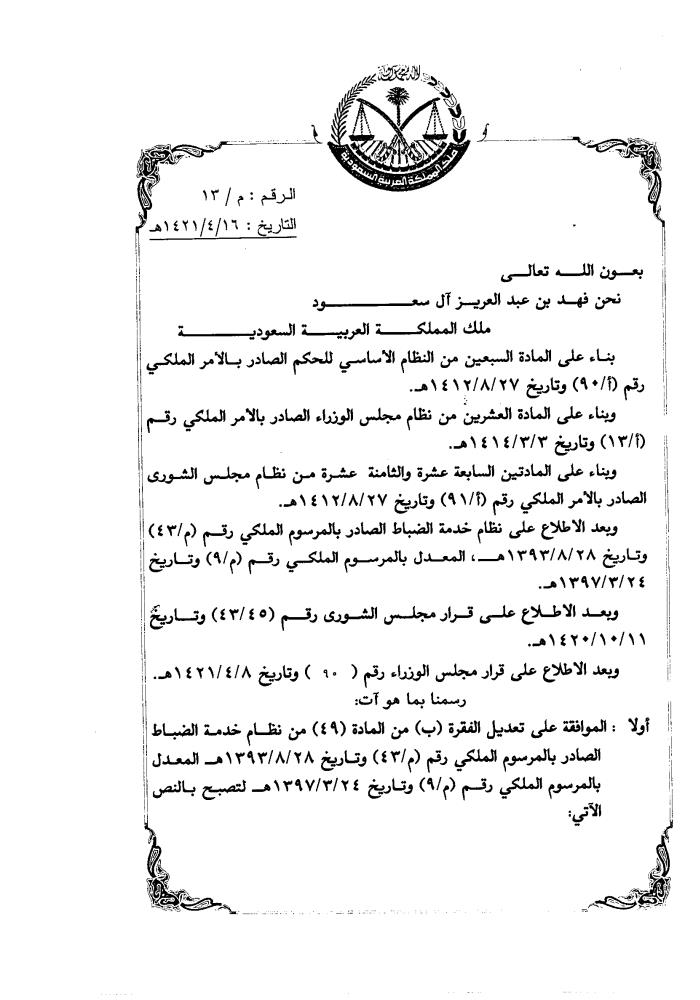 ملك المملكة العربية السعودية
الرقم : م / ١٣
التاريخ : ١٤٢١/٤/١٦هـ
بعـون اللـــه تعالــى
نحن فهـد بن عبد العزيـز آل سعـــــــــود
ملك المملكـــــة العربيـــــة السعوديـــــــة
بناء على المادة السبعين من النظام الأساسي للحكم الصادر بـالأمر الملكـي
رقم (أ/٩٠) وتاريخ ١٤١٢/٨/٢٧هـ.
وبناء على المادة العشرين من نظام مجلس الوزراء الصادر بالأمر الملكي رقـم
(أ/١٣) وتاريخ ١٤١٤/٣/٣هـ.
وبناء على المادتين السابعة عشرة والثامنة عشرة مـن نظـام مجلـس الشـورى
الصادر بالأمر الملكي رقم (أ/٩١) وتاريخ ١٤١٢/٨/٢٧هـ.
وبعد الاطلاع على نظام خدمة الضباط الصادر بالمرسوم الملكي رقـم (م/٤٣)
وتاريخ ١٣٩٣/٨/٢٨هـ، المعدل بالمرسوم الملكـي رقـم (م/٩) وتاريخ
١٣٩٧/٣/٢٤هـ.
وبعـد الاطـلاع علـى قـرار مجلـس الشـورى رقـم (٤٣/٤٥) وتـاريخ
١٤٢٠/١٠/١١هـ.
وبعد الاطلاع على قرار مجلس الوزراء رقم ( ٩٠ ) وتاريخ ١٤٢١/٤/٨هـ.
رسمنا بما هو آت:
أولا : الموافقة على تعديل الفقرة (ب) من المادة (٤٩) من نظام خدمـة الضبـاط
الصادر بالمرسوم الملكي رقم (م/٤٣) وتاريخ ١٣٩٣/٨/٢٨هـ المعدل
بالمرسوم الملكي رقـم (م/٩) وتـاريخ ١٣٩٧/٣/٢٤هـ لتصبح بـالنص
الآتي: